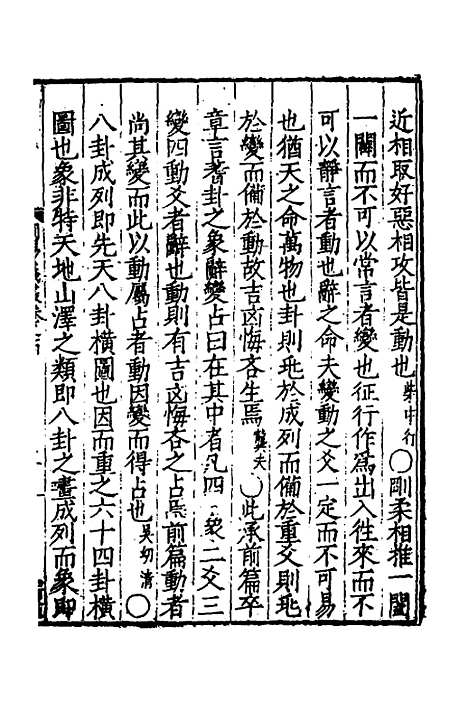 近相取好惡相攻皆是動也柴中行〇剛柔相推一闔
一闢而不可以常言者變也征行作爲出入徃來而不
可以靜言者動也辭之命夫變動之爻一定而不可易
也猶天之命萬物也卦則兆於成列而備於重爻則兆
於變而備於動故吉凶悔吝生焉龔夫〇此承前篇卒
章言蓍卦之象辭變占曰在其中者凡四一象二爻三
變四動爻者辭也動則有吉凶悔吝之占焉前篇動者
尚其變而此以動屬占者動因變而得占也吴幼清〇
八卦成列即先天八卦橫圖也因而重之六十四卦橫
圖也象非特天地山澤之類即八卦之畫成列而象即